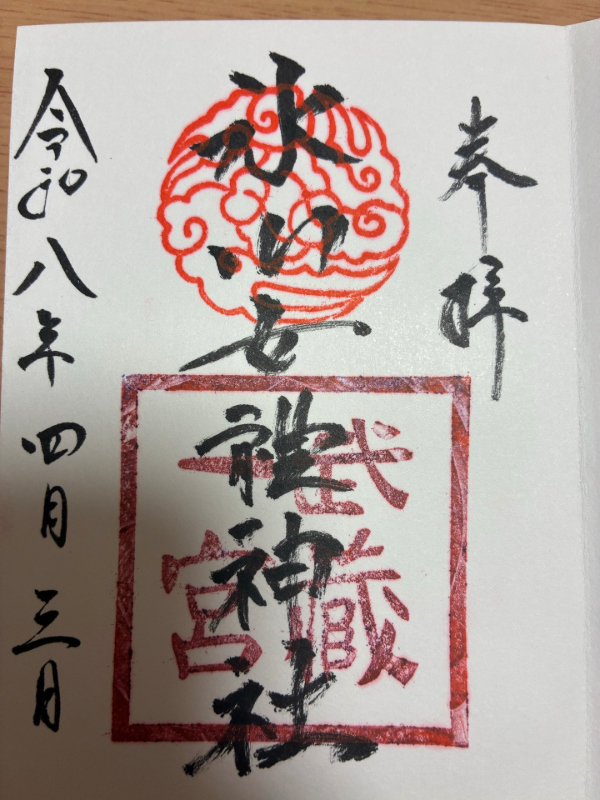 奉拝
氷川女體神社
武蔵
一宮
令和八年四月三日